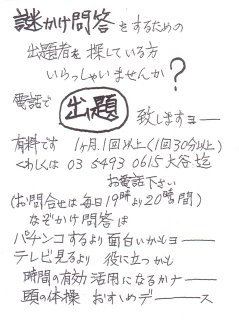 謎かけ問答をするための
出題者を探している方
いらっしゃいませんか?
電話で 出題 致しますヨー
有料です 1ヶ月1回以上(1回30分以上)
くわしくは 03 5493 0615 大谷迄
お電話下さい
(お問合せは毎日19時より20時間)
なぞかけ問答は
パチンコするより面白いかもヨー
テレビ見るより 役に立つかも
時間の有効活用になるかナー
頭の体操 おすすめデース